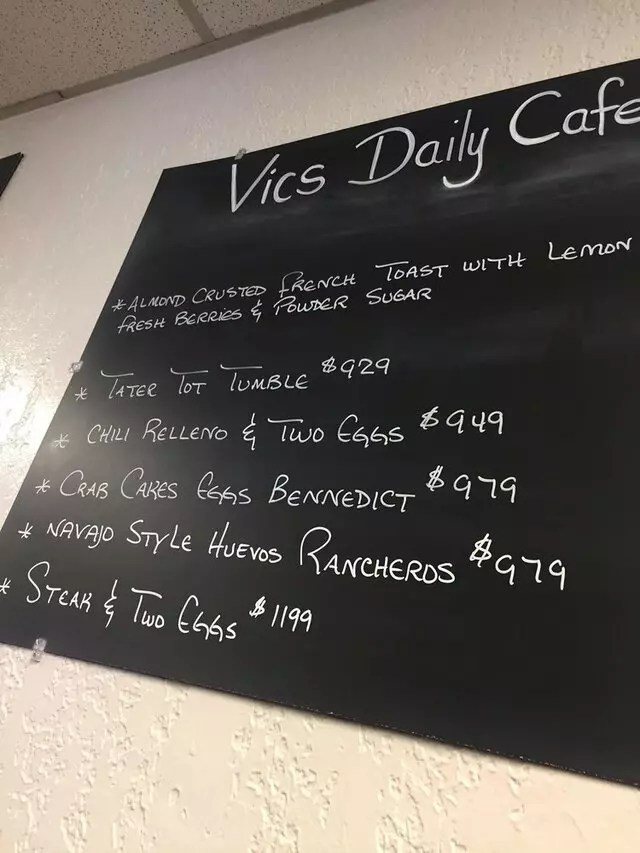 Vics Daily Cafe
* ALMOND CRUSTED FRENCH TOAST WITH LEMON
FRESH BERRIES & POWDER SUGAR
* TATER TOT TUMBLE $929
* CHILI RELLENO & TWO EGGS $949
* CRAB CAKES EGGS BENNEDICT $979
* NAVAJO STYLE HUEVOS RANCHEROS $979
* STEAK & TWO EGGS $1199